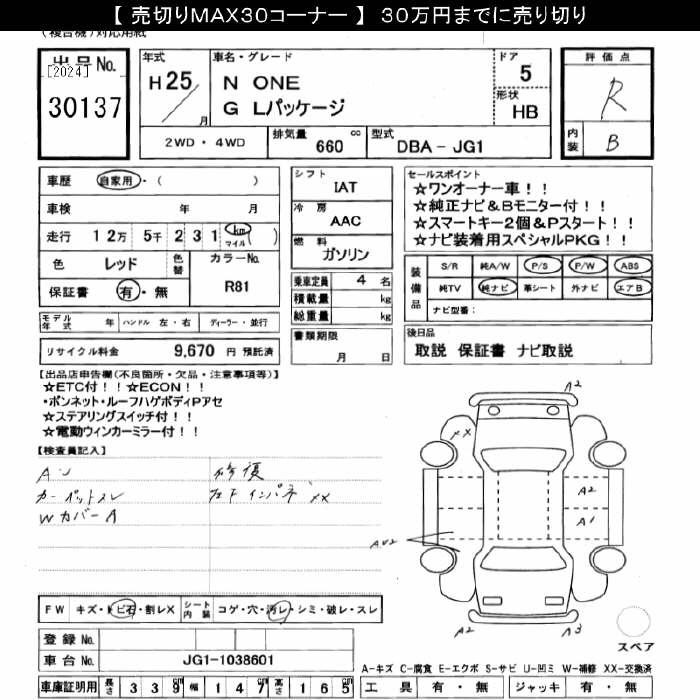 【 売切りMAX30コーナー 】 30万円までに売り切り
(複合機)対応用紙
出品No.
[2024]
30137
年式
H25/
月
車名・グレード
N ONE
G Lパッケージ
ドア
5
形状
HB
評価点
R
内装
B
2WD・4WD
排気量
660
cc
型式
DBA-JG1
車歴
自家用・( )
車検 年 月
走行 12万 5千 231 km マイル ( )
色 レッド 色替
カラーNo.
R81
保証書 有・無
シフト
IAT
冷房
AAC
燃料
ガソリン
乗車定員 4 名
積載量 kg
総重量 kg
セールスポイント
☆ワンオーナー車！！
☆純正ナビ&Bモニター付！！
☆スマートキー2個&Pスタート！！
☆ナビ装着用スペシャルPKG！！
装備品
S/R 純A/W P/S P/W ABS
純TV 純ナビ 革シート 外ナビ エアB
ナビ型番：
モデル年式 年 ハンドル 左・右 ディーラー・並行
リサイクル料金 9,670 円 預託済
書類期限
月 日
後日品
取説 保証書 ナビ取説
【出品店申告欄(不良箇所・欠品・注意事項等)】
☆ETC付！！☆ECON！！
・ボンネット・ルーフハゲボディPアセ
☆ステアリングスイッチ付！！
☆電動ウィンカーミラー付！！
【検査員記入】
修復
カーペットスレ
Wカバー A
A2
XX
A2
A1
A2
A3
スペア
FW キズ・トビ石・割レX シート内装 コゲ・穴・汚レ・シミ・破レ・スレ
登録No.
車台No. JG1-1038601
A-キズ C-腐食 E-エクボ S-サビ U-凹ミ W-補修 XX-交換済
車庫証明用 長さ 339 幅 147 高さ 165 工具 有・無 ジャッキ 有・無